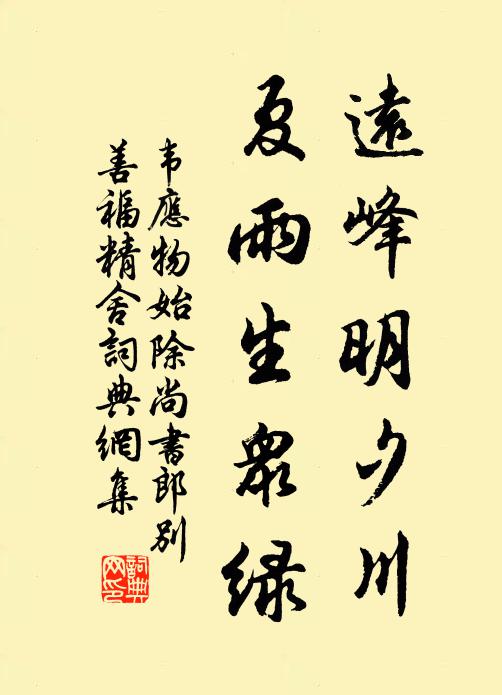 遠峰明夕川
夏雨生衆緑
韦應物始除尚書郎别
善福精舍詞典網集
詞典網印